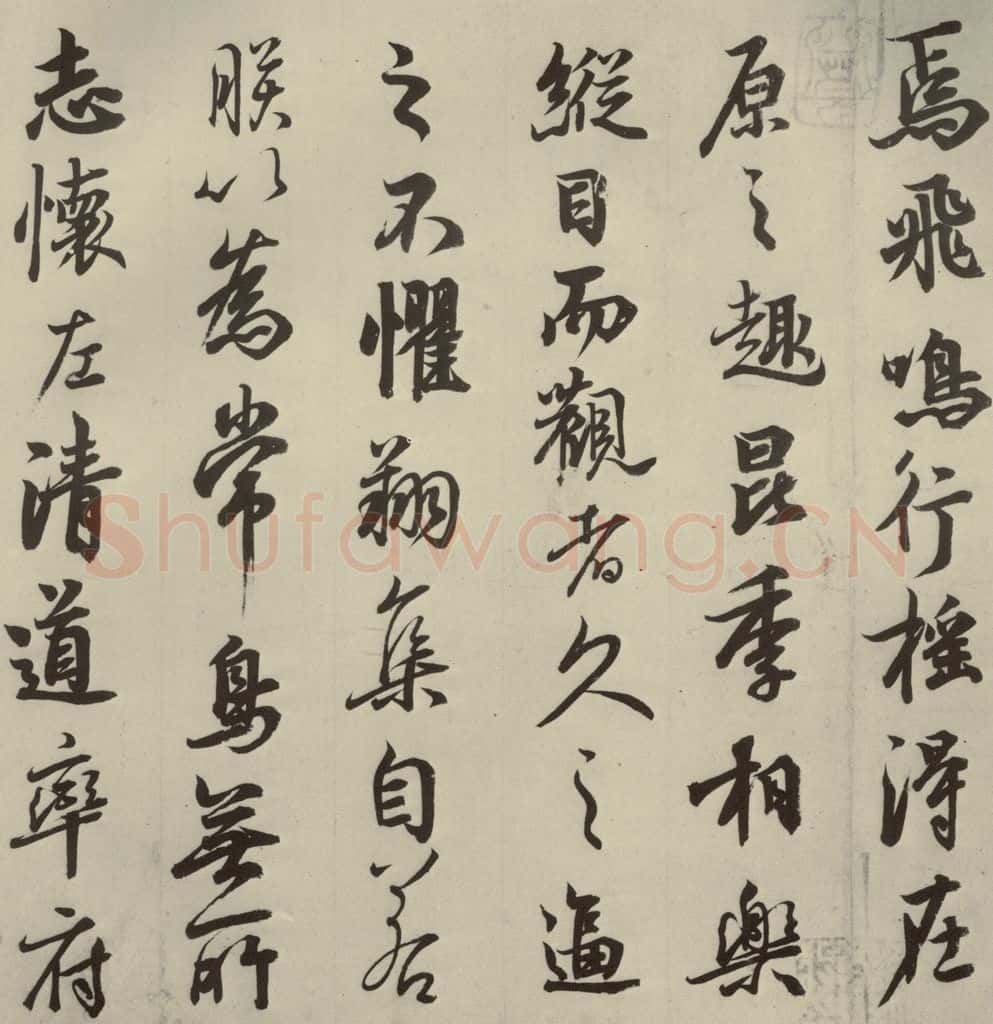 焉飛鳴行搖得在
原之趣昆季相樂
縱目而觀者久之逼
之不懼翔集自若
朕以為常鳥無所
志懷左清道率府
Shufawang.CN